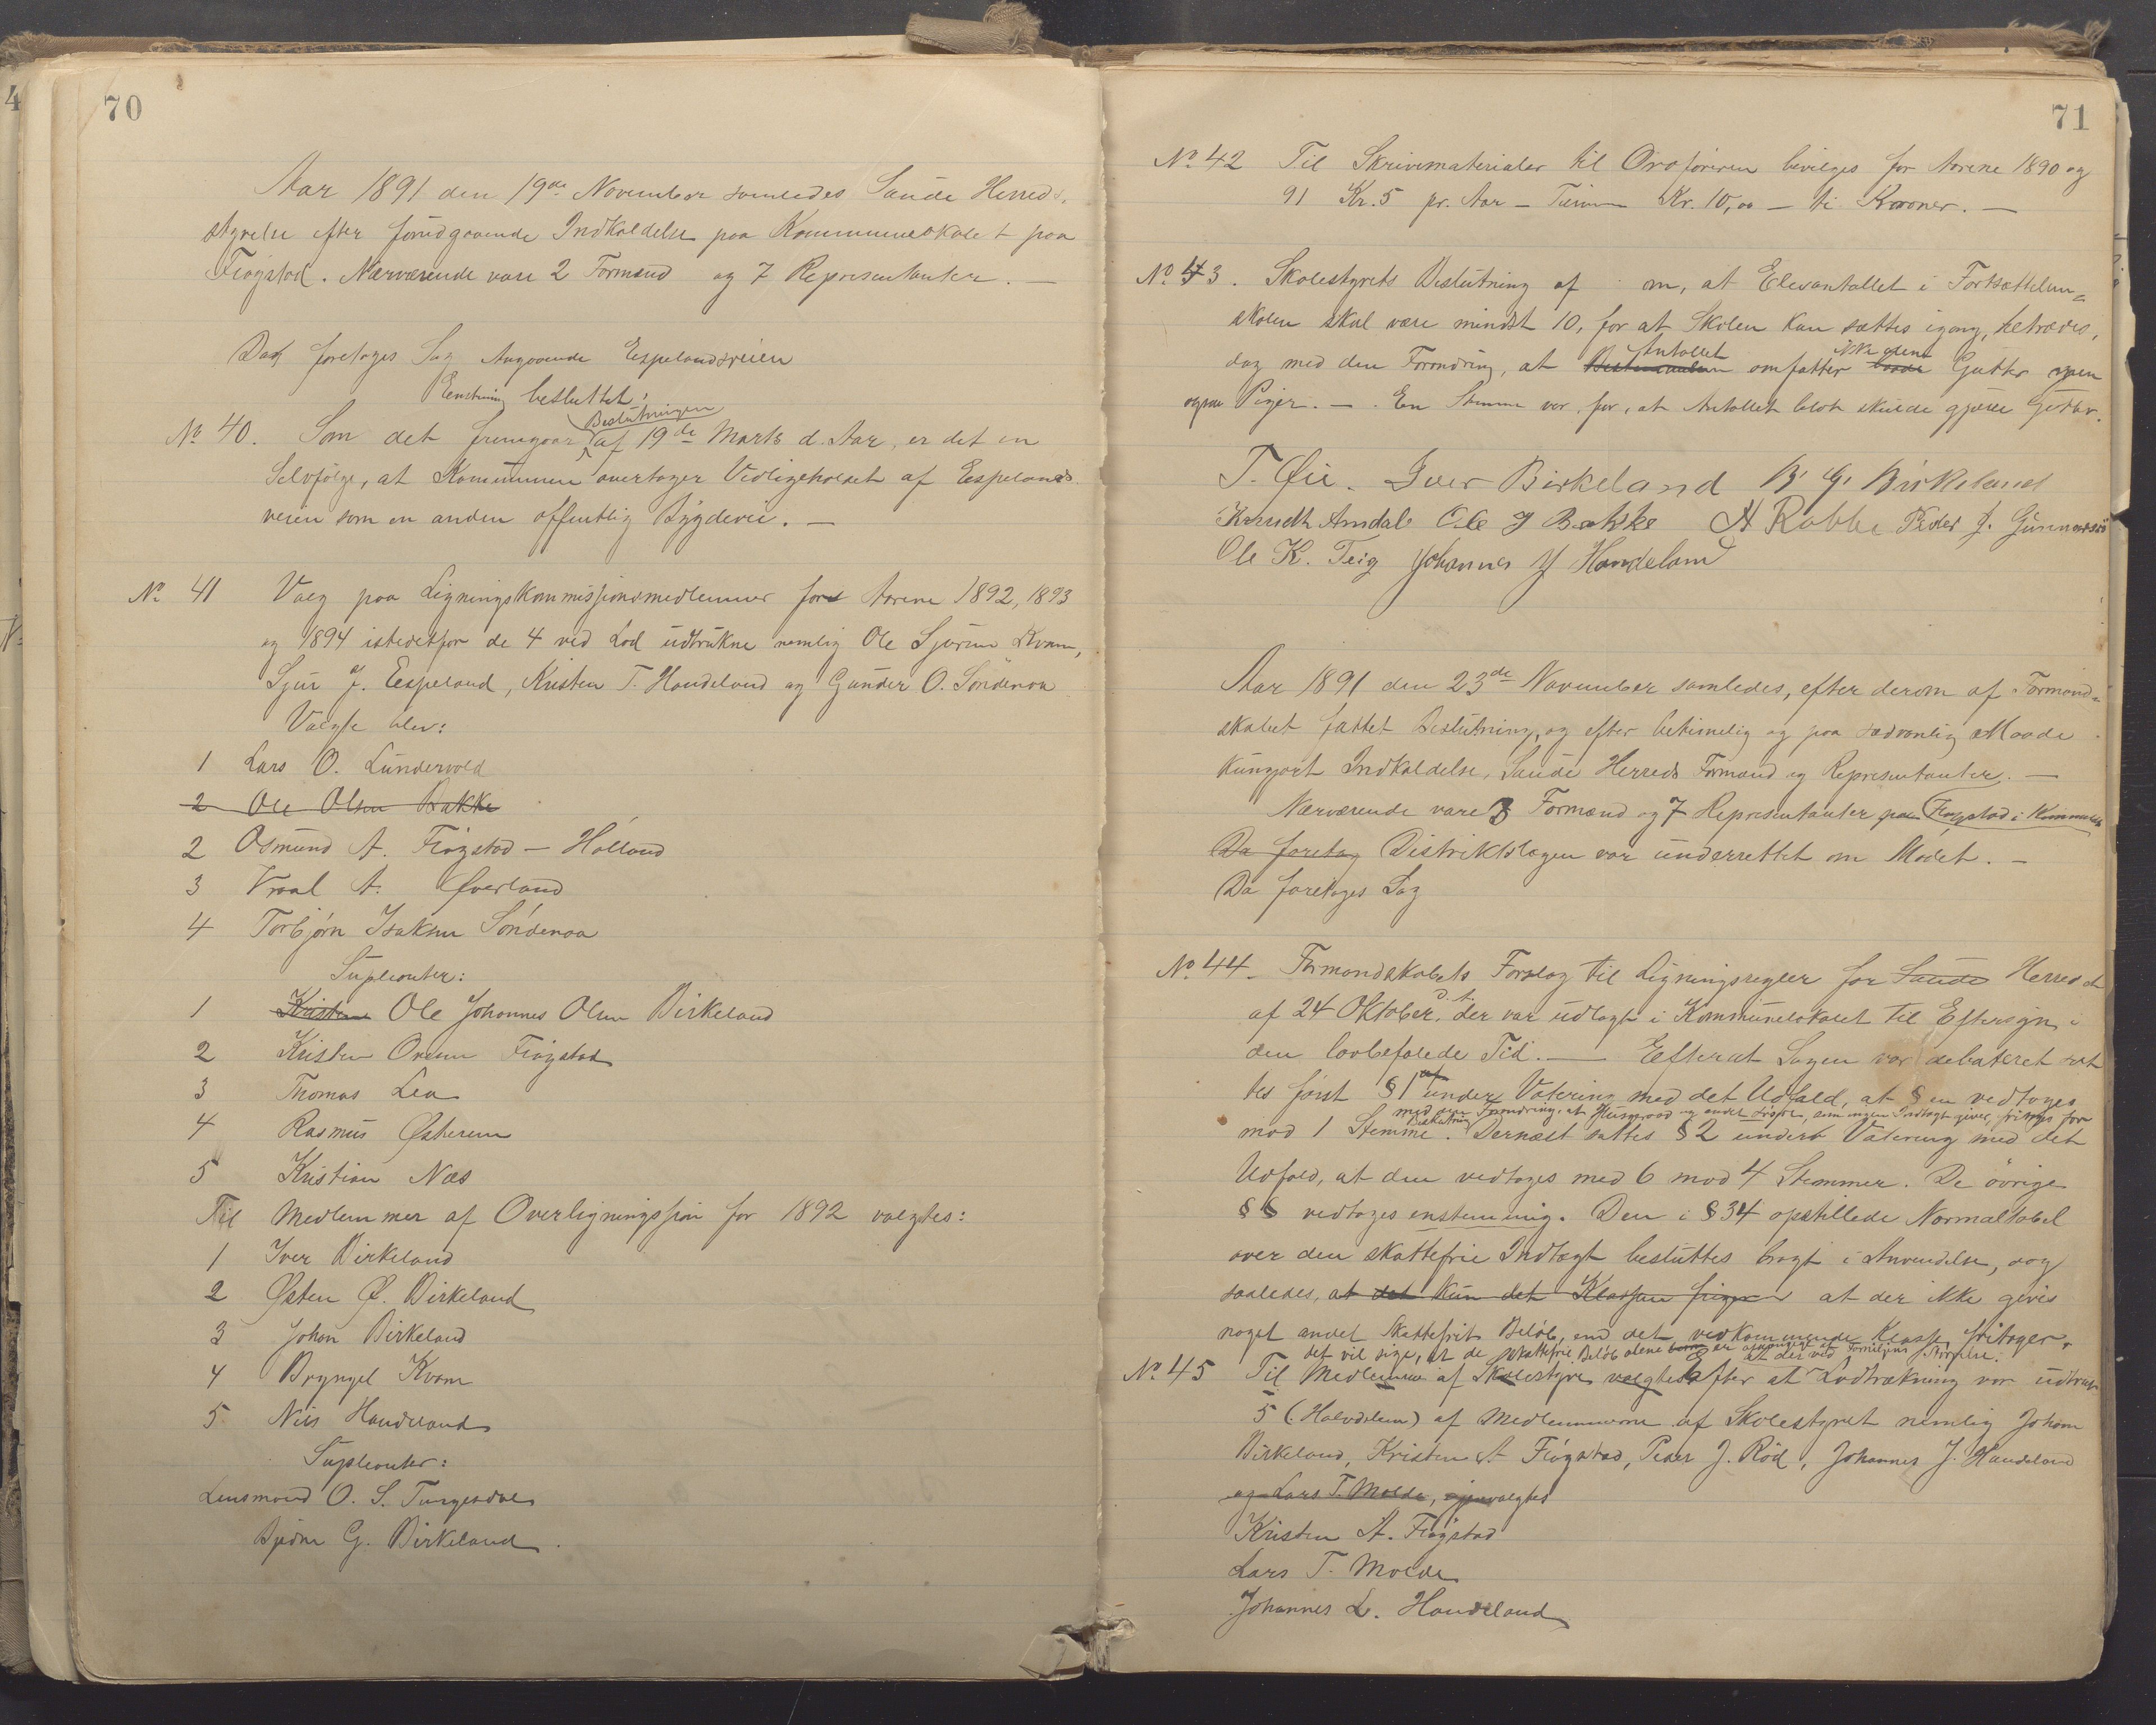 70
Aar 1891 den 19de November samledes Saude Herreds
styrelse efter forudgaaende Indkaldelse paa Kommunelokalet paa
Fløgstad. Nærværende vare 2 Formænd og 7 Representanter. —
Da foretoges Sag Angaaende Espelandsveien
Enstemig besluttet:
No 40. Som det fremgaar Beslutningen af 19de Marts d. Aar, er det en
Selvfølge, at Kommunen overtager Vedligeholdet af Espelands
veien som en anden offentlig Bygdevei. —
No 41 Valg paa Ligningskommissionsmedlemmer for Aarene 1892, 1893
og 1894 istedetfor de 4 ved Lod udtrukne nemlig Ole Sjursen Kvam,
Sjur J. Espeland, Kristen T. Handeland og Gunder O. Söndenaa
Valgte blev:
1 Lars O. Lundervold
2 Ole Olsen Bakke
2 Osmund A. Fløgstad — Hålland
3 Vraal A. Øverland
4 Torbjørn Isaksen Söndenaa
Supleanter:
1 Kristen Ole Johannes Olsen Birkeland
2 Kristen Fløgstad
3 Thomas Lea
4 Rasmus Østerem
5 Kristian Næs
Til Medlemmer af Overligningssion for 1892 valgtes:
1 Iver Birkeland
2 Østen Ø. Birkeland
3 Johan Birkeland
4 Bryngel Kvam
5 Nils Handeland
Supleanter:
Lensmand O. S. Tungesdal
Bjödne G. Birkeland.
71
No 42 Til Skrivematerialer til Ordføreren bevilges for Aarene 1890 og
91 Kr. 5 pr. Aar — Kr. 10,00 — ti Kroner. —
No 43. Skolestyrets Beslutning af om, at Elevantallet i Fortsættelses=
skolen skal være mindst 10, for at Skolen kan sættes igang, tiltrædes,
dog med den Forandring, at Antallet omfatter ikke alene baade Gutter men
ogsaa Piger. — . En Stemme var for, at Antallet blot skulde gjælde Gutter.
T. Øie. Iver Birkeland B. G. Birkeland
Knudt Amdal Ole J Bakke A Rabbe Peder J. Gunnarssö
Ole K. Teig Johannes J Handeland
Aar 1891 den 23de November samledes, efter derom af Formand=
skabet fattet Beslutning, og efter betimelig og paa sedvanlig Maade
kungjort Indkaldelse, Saude Herreds Formænd og Representanter. —
Nærværende vare 3 Formænd og 7 Representanter paa Fløgstad i Kommunelok
Da foretog Distriktslægen var underrettet om Mødet. —
Da foretoges Sag
No 44. Formandskabets Forslag til Ligningsregler for Saude Herred
af 24 Oktober d. A. der var udlagt i Kommunelokalet til Eftersyn i
den lovbefalede Tid. — Efterat Sagen var debateret sat
tes først § 1 under Votering med det Udfald, at §en vedtoges
med den Forandring, at Husgraad og andet Løsøre, som ingen Indtægt giver, fritages for Beskatning
mod 1 Stemme. Dernæst sattes § 2 under Votering med det
Udfald, at den vedtoges med 6 mod 4 Stemmer. De övrige
§ § vedtoges enstemmig. Den i § 34 opstillede Normaltabel
over den skattefrie Indtægt besluttes bragt i Anvendelse, dog
saaledes, at det kun det Klassen at der ikke gives
noget andet Skattefrit Beløb, end det vedkommende Klasse fritager,
det vil sige, at de skattefrie Beløb alene er afhængigt af Familiens Størrelse.
No 45 Til Medlemmer af Skolestyre valgtes efter at der ved Lodtrækning var udtruk
5 (Halvdelen) af Medlemmerne af Skolestyret nemlig Johan
Birkeland, Kristen A Fløgstad, Peder J. Röd, Johannes J. Handeland
og Lars T. Molde, gjenvalgtes
Kristen A. Fløgstad
Lars T. Molde
Johannes L. Handeland